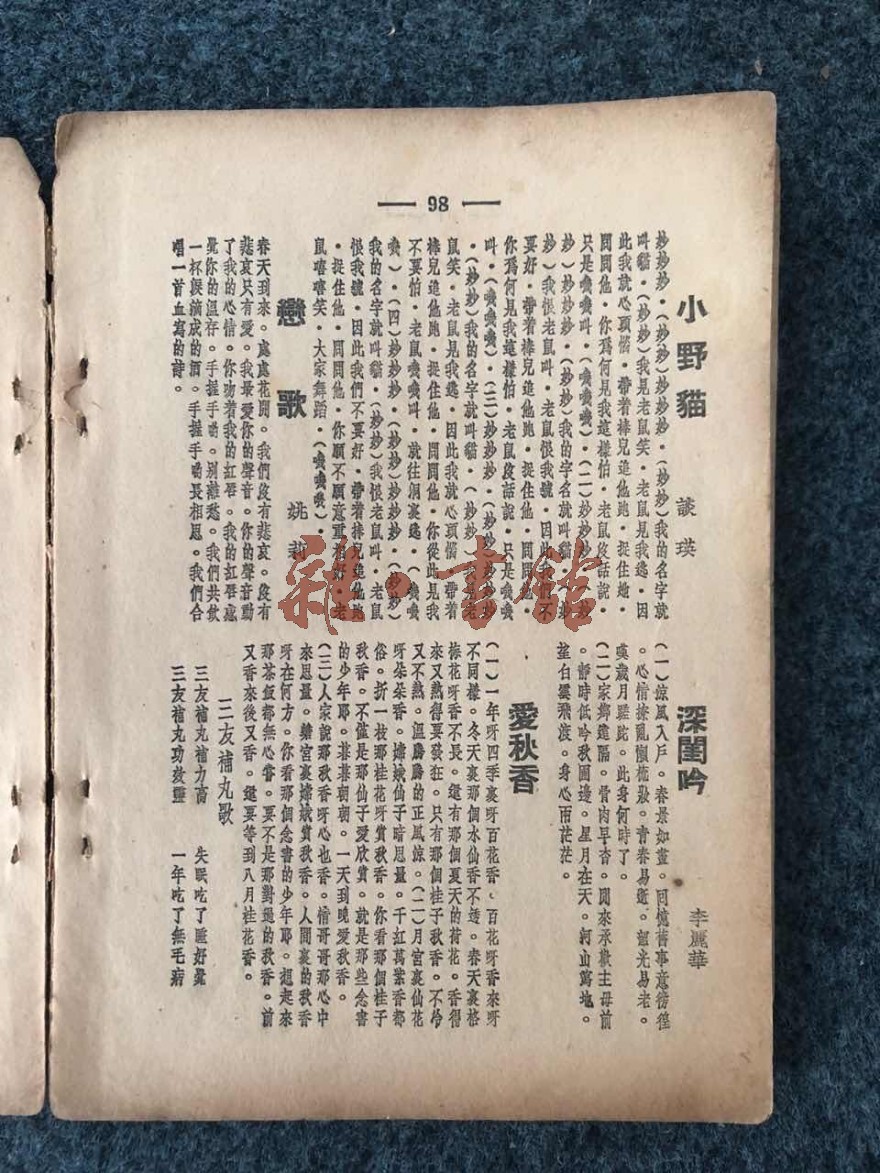 98
小野貓
談瑛
妙妙妙・(妙妙)妙妙妙・(妙妙)我的名字就
叫貓・(妙妙)我見老鼠笑・老鼠見我逃・因
此我就心頭惱・帶着棒兒追他跑・捉住他・
問問他・你爲何見我這樣怕・老鼠沒話說・
只是嘰嘰叫・(嘰嘰嘰)・(二)妙妙妙・(妙
妙)妙妙妙・(妙妙)我的字名就叫貓・(妙
妙)我恨老鼠叫・老鼠恨我號・因此我們不
要好・帶着棒兒追他跑・捉住他・問問他・
你爲何見我這樣怕・老鼠沒話說・只是嘰嘰
叫・(嘰嘰嘰)・(三)妙妙妙・(妙妙)妙妙妙
・(妙妙)我的名字就叫貓・(妙妙)我見老
鼠笑・老鼠見我逃・因此我就心頭惱・帶着
棒兒追他跑・捉住他・問問他・你從此見我
不要怕・老鼠嘰嘰叫・就往洞裏逃・(嘰嘰
嘰)・(四)妙妙妙・(妙妙)妙妙妙・(妙妙)
我的名字就叫貓・(妙妙)我恨老鼠叫・老鼠
恨我號・因此我們不要好・帶着棒兒追他跑
・捉住他・問問他・你願不願意重和好・老
鼠嘻嘻笑・大家舞蹈・(嘰嘰嘰)・
戀歌
姚莉
春天到來。處處花開。我們沒有悲哀。沒有
悲哀只有愛。我最愛你的聲音。你的聲音動
了我的心情。你吻着我的紅唇。我的紅唇感
覺你的溫存。手握手喲。別離愁。我們共飲
一杯淚滴成的酒。手握手喲長相思。我們合
唱一首血寫的詩。
深閨吟
李麗華
(一)涼風入戶。春景如畫。回憶舊事意徬徨
。心情撩亂懶梳妝。青春易逝。韶光易老。
嘆歲月蹉跎。此身何時了。
(二)家鄉遠隔。骨肉早杳。閒來承歡主母前
。靜時低吟秋圃邊。星月在天。河山萬地。
莖白雲飛渡。身心兩茫茫。
愛秋香
(一)一年呀四季裏呀百花香、百花呀香來呀
不同樣。冬天裏那個水仙香不透。春天裏格
梅花呀香不長。還有那個夏天的荷花。香得
來又熱得要發狂。只有那個桂子秋香。不冷
又不熱。溫騰騰的正風涼。(二)月宮裏仙花
呀朵朵香。嫦娥仙子暗思量。千紅萬紫香都
俗。折一枝那桂花呀賞秋香。你看那個桂子
秋香。不僅是那仙子愛欣賞。就是那些念書
的少年耶。暮暮朝朝。一天到晚愛秋香。
(三)人家說那秋香呀心也香。情哥哥那心中
來思量。蟾宮裏嫦娥賞秋香。人間裏的秋香
呀在何方。你看那個念書的少年耶。想起來
那茶飯都無心嘗。要不是那對過的秋香。前
又香來後又香。還要等到八月桂花香。
三友補丸歌
三友補丸補力高　失眠吃了睡好覺
三友補丸功效靈　一年吃了無毛病
雜・書館